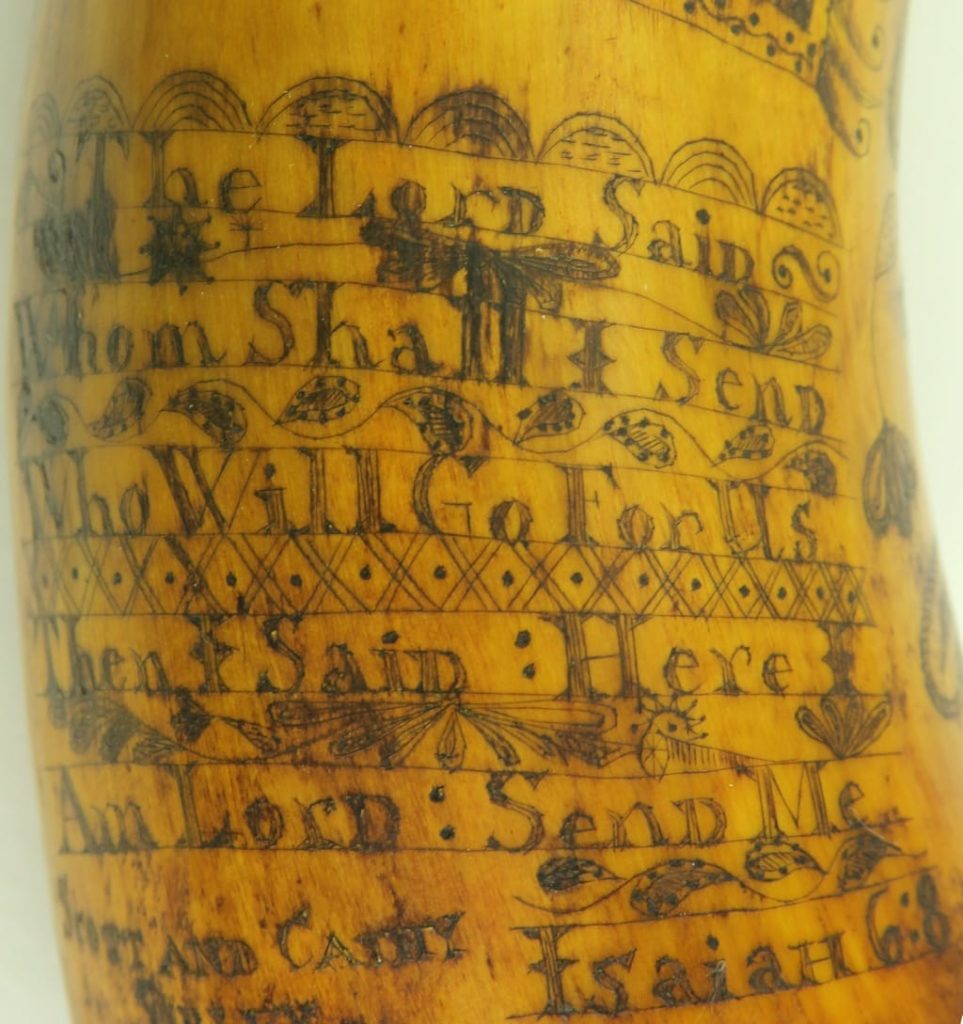 The Lord Said
Whom Shall I Send
Who Will Go For Us
Then I Said : Here I
Am Lord : Send Me
Scott and Cathy
Isaiah 6:8